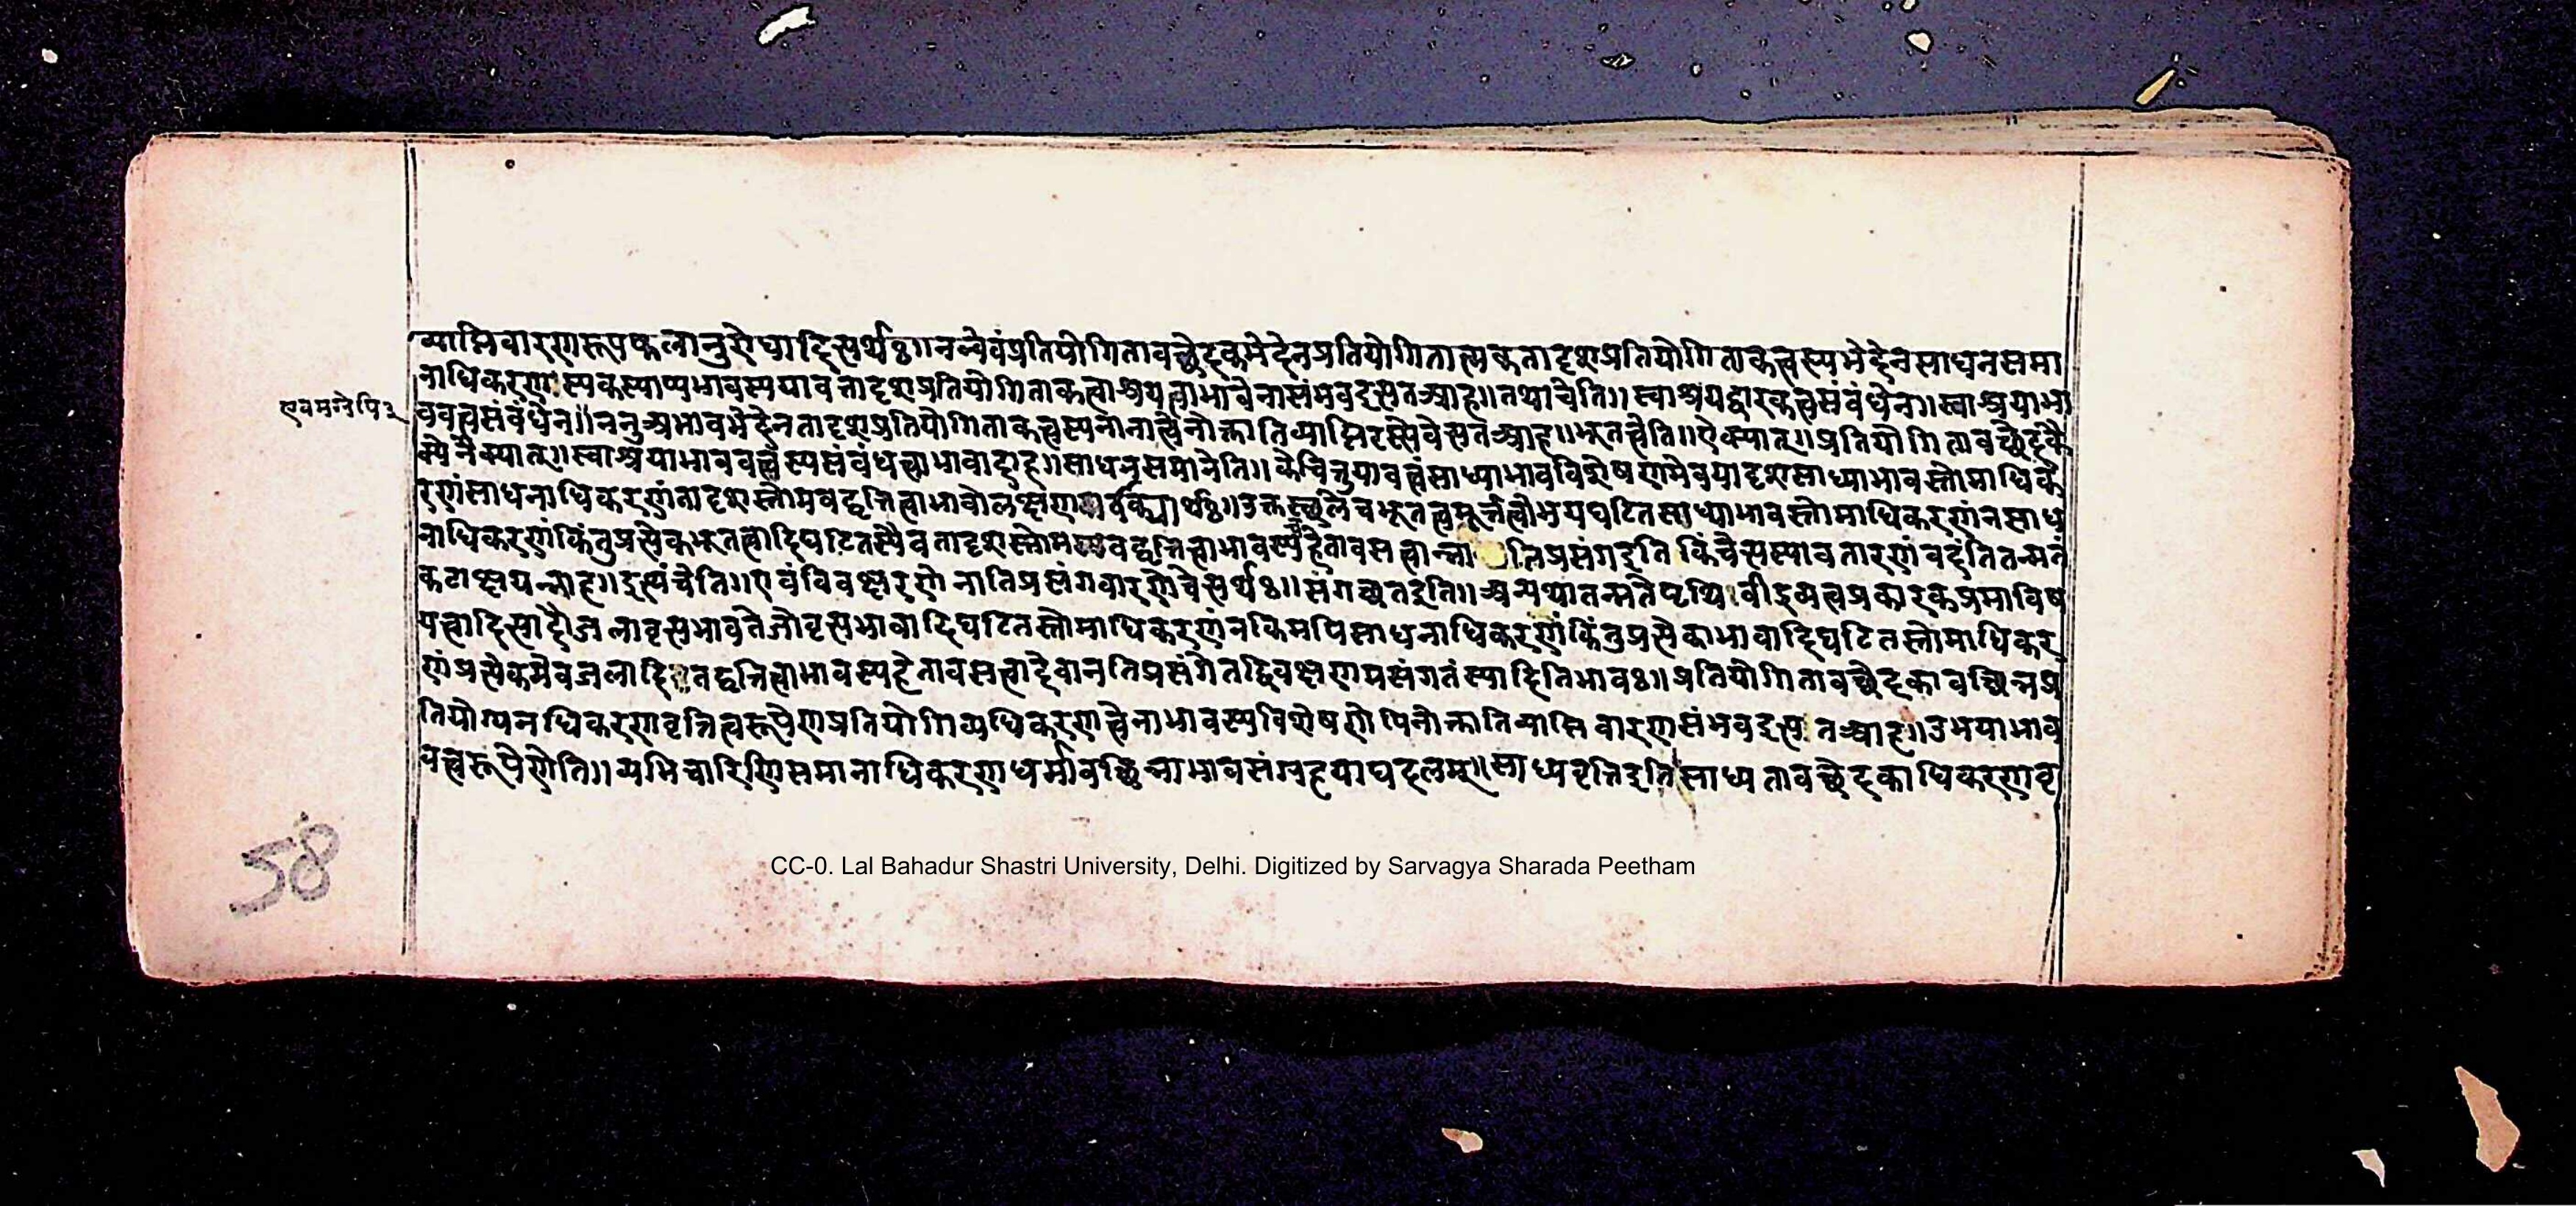 व्याप्तिवारणरूपफलानुरोधादित्यर्थः॥नन्वेवंप्रतियोगितावच्छेदकभेदेनप्रतियोगितात्मकतादृशप्रतियोगिताकत्वस्यभेदेनसाधनसमा
नाधिकरणस्यकस्याप्यभावस्ययावत्तादृशप्रतियोगिताकत्वाश्रयत्वाभावेनासंभवइत्यतआह॥तथाचेति॥स्वाश्रयद्वारकत्वसंबंधेन॥स्वाश्रयाभा
एवमग्रेपि३
ववत्वसंबंधेन॥ननुअभावभेदेनतादृशप्रतियोगिताकत्वस्यनानात्वेनोक्तातिव्याप्तिरस्त्येवेत्यतआह॥भूतत्वेति॥ऐक्यात्॥प्रतियोगितावच्छेदकै
क्येनैक्यात्॥स्वाश्रयाभाववत्वस्यसंबंधत्वाभावादाह॥साधनसमानेति॥केचित्तुयावत्वंसाध्याभावविशेषणमेवयादृशसाध्याभावस्तोमाधिक
रणंसाधनाधिकरणंतादृशस्तोमवद्वृत्तित्वाभावोलक्षणवाक्यार्थः॥उक्तस्थलेचभूतत्वमूर्त्तत्वोभयघटितसाध्याभावस्तोमाधिकरणंनसाध
नाधिकरणंकिंतुप्रत्येकभूतत्वादिघटितस्यैवतादृशस्तोमवद्वृत्तित्वाभावस्यहेतावसत्वान्नातिप्रसंगइति किंचेत्यस्यावतारणंवदंतितन्मतं
कटाक्षयन्नाह॥इत्थंचेति॥एवंविवक्षणे नातिप्रसंगवारणेचेत्यर्थः॥संगच्छतइति॥अन्यथातन्मतेपृथिवीद्रव्यत्वप्रकारकप्रमाविष
यत्वादित्यादौजलावृत्यभावतेजोवृत्यभावादिघटितस्तोमाधिकरणंनकिमपिसाधनाधिकरणंकिंतुप्रत्येकाभावादिघटितस्तोमाधिकर
णंप्रत्येकमेवजलादितद्वृत्तित्वाभावस्यहेतावसत्वादेवानतिप्रसंगेतद्विवक्षणमसंगतंस्यादितिभावः॥प्रतियोगितावच्छेदकावच्छिन्नप्र
तियोग्यनधिकरणवृत्तित्वरूपेणप्रतियोगिव्यधिकरणत्वेनाभावस्यविशेषणेपिनोक्तातिव्याप्ति वारणसंभवइत्य तआह॥उभयाभाव
वत्वरूपेणेति॥व्यभिचारिणिसमानाधिकरणधर्मावच्छिन्नाभावसंग्रहयाघदलम्॥साध्यवृत्तिइतिसाध्य तावच्छेदकाधिकरणवृ
58
CC-0. Lal Bahadur Shastri University, Delhi. Digitized by Sarvagya Sharada Peetham